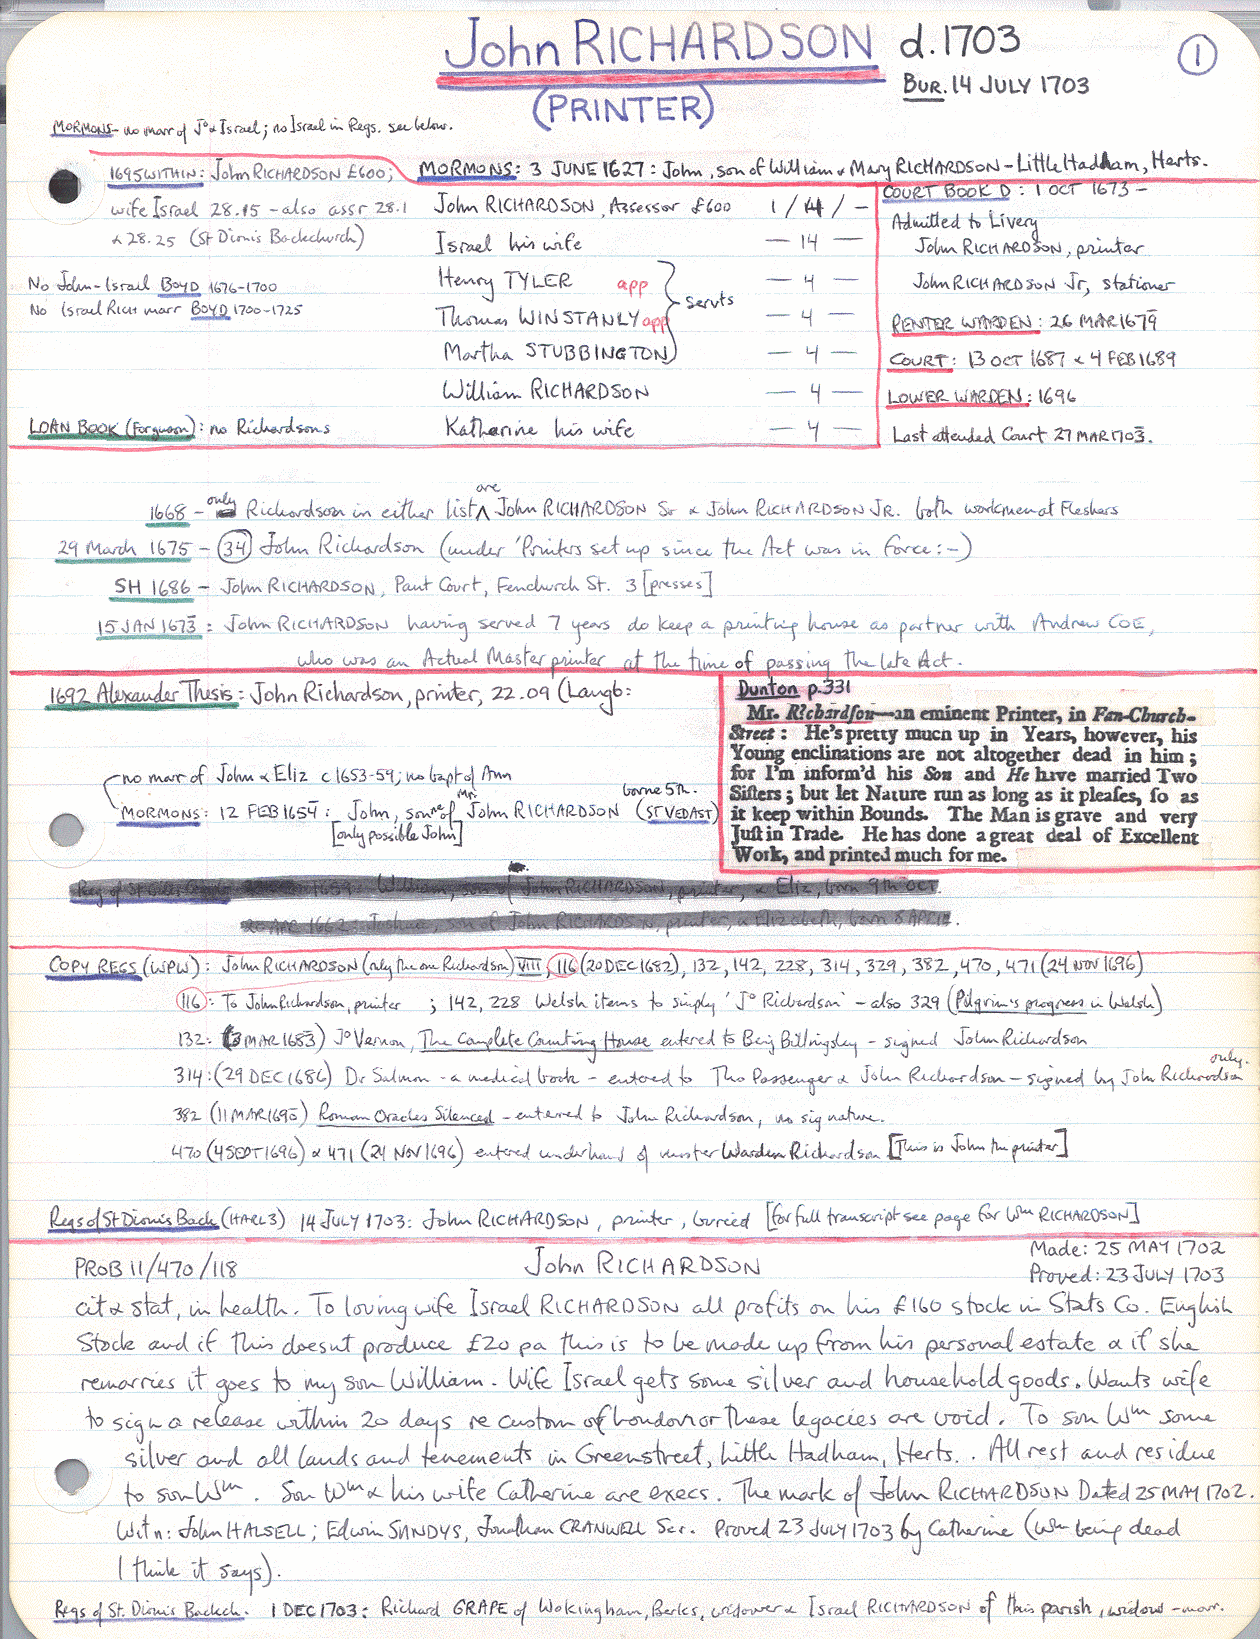 John RICHARDSON d. 1703 ①
BUR. 14 JULY 1703
(PRINTER)
MORMONS - no marr of Jº & Israel; no Israel in Regs. see below.
1695 WITHIN: John RICHARDSON £600;
wife Israel 28.15 - also assr 28.1
& 28.25 (St Dionis Backchurch)
No John-Israel BOYD 1676-1700
No Israel Rich marr BOYD 1700-1725
LOAN BOOK (Ferguson): no Richardsons
MORMONS: 3 JUNE 1627: John, son of William & Mary RICHARDSON - Little Hadham, Herts.
John RICHARDSON, Assessor £600 1/4/-
Israel his wife — 14 —
Henry TYLER app — 4 —
Thomas WINSTANLY app — 4 —
servts
Martha STUBBINGTON — 4 —
William RICHARDSON — 4 —
Katharine his wife — 4 —
COURT BOOK D: 1 OCT 1673 -
Admitted to Livery
John RICHARDSON, printer
John RICHARDSON Jr, stationer
RENTER WARDEN: 26 MAR 1679
COURT: 13 OCT 1687 & 4 FEB 1689
LOWER WARDEN: 1696
Last attended Court 27 MAR 1703.
1668 - only Richardson in either list are John RICHARDSON Sr & John RICHARDSON JR. both workmen at Fleshers
29 March 1675 - (34) John Richardson (under 'Printers set up since the Act was in force:-)
SH 1686 - John RICHARDSON, Paut Court, Fenchurch St. 3 [presses]
15 JAN 1673: John RICHARDSON having served 7 years do keep a printing house as partner with Andrew COE,
who was an Actual Master printer at the time of passing the late Act.
1692 Alexander Thesis: John Richardson, printer, 22.09 (Langb:
no marr of John & Eliz c1653-59; no bapt of Ann
MORMONS: 12 FEB 1654: John, son of Mr John RICHARDSON borne 5th. (ST VEDAST)
[only possible John]
Dunton p.331
Mr. Richardson—an eminent Printer, in Fan-Church-
Street: He's pretty much up in Years, however, his
Young enclinations are not altogether dead in him;
for I'm inform'd his Son and He have married Two
Sisters; but let Nature run as long as it pleases, so as
it keep within Bounds. The Man is grave and very
Just in Trade. He has done a great deal of Excellent
Work, and printed much for me.
1659: William, son of John RICHARDSON, printer, & Eliz, born 9th OCT.
20 APR 1662: Joshua, son of John RICHARDSON, printer, & Elizabeth, born 8 APRIL.
COPY REGS (WPW): John RICHARDSON (only the one Richardson) VIII, 116 (20 DEC 1682), 132, 142, 228, 314, 329, 382, 470, 471 (24 NOV 1696)
116: To John Richardson, printer; 142, 228 Welsh items to simply 'Jº Richardson' - also 329 (Pilgrim's progress in Welsh)
132: (3 MAR 1683) Jº Vernon, The Complete Counting House entered to Benj Billingsley - signed John Richardson
314: (29 DEC 1686) Dr Salmon - a medical book - entered to Tho Passenger & John Richardson - signed by John Richardson only.
382 (11 MAR 1690) Roman Oracles Silenced - entered to John Richardson, no signature.
470 (4 SEPT 1696) & 471 (24 NOV 1696) entered under hand of master Warden Richardson [This is John the printer]
Regs of St Dionis Back (HARL 3) 14 JULY 1703: John RICHARDSON, printer, buried [for full transcript see page for Wm RICHARDSON]
PROB 11/470/118 John RICHARDSON Made: 25 MAY 1702
Proved: 23 JULY 1703
cit & stat, in health. To loving wife Israel RICHARDSON all profits on his £160 stock in Stats Co. English
Stock and if this doesnt produce £20 pa this is to be made up from his personal estate & if she
remarries it goes to my son William. Wife Israel gets some silver and household goods. Wants wife
to sign a release within 20 days re custom of London or these legacies are void. To son Wm some
silver and all lands and tenements in Greenstreet, Little Hadham, Herts.. All rest and residue
to son Wm. Son Wm & his wife Catherine are execs. The mark of John RICHARDSON Dated 25 MAY 1702.
Witn: John HALSELL; Edwin SANDYS, Jonathan CRANWELL Scr. Proved 23 JULY 1703 by Catherine (Wm being dead
I think it says).
Regs of St. Dionis Backch. 1 DEC 1703: Richard GRAPE of Wokingham, Berks, widower & Israel RICHARDSON of this parish, widow - marr.